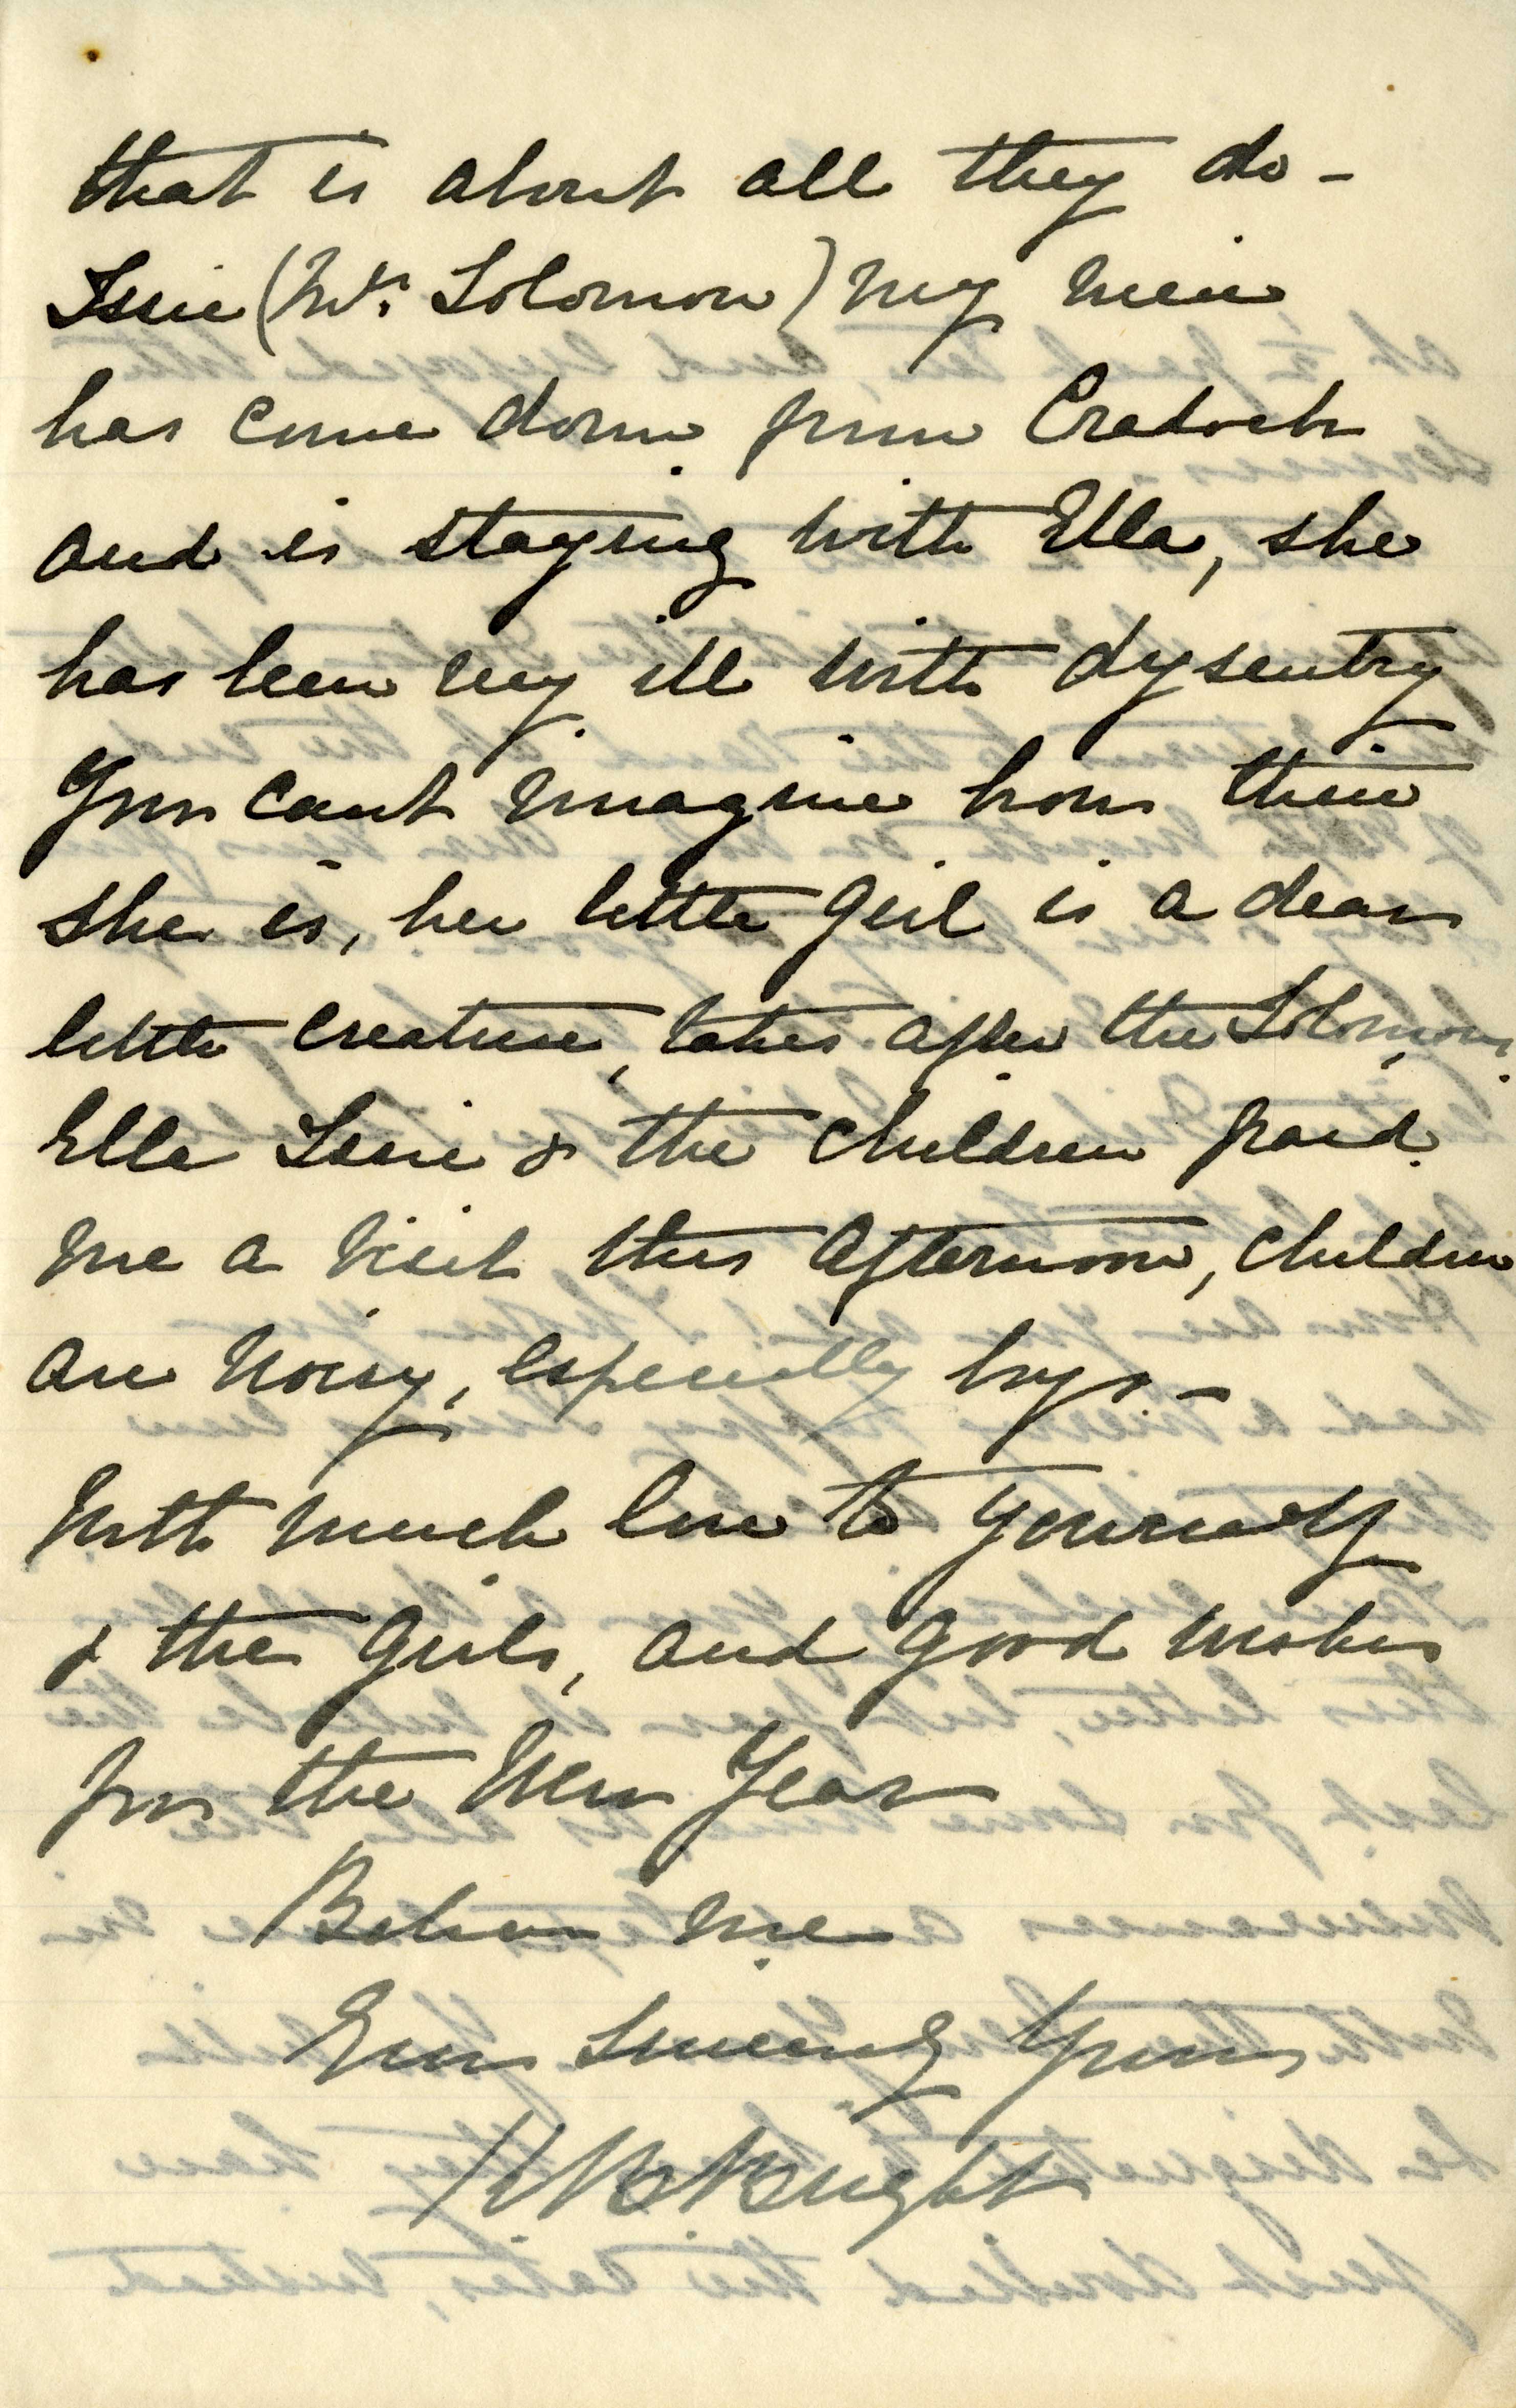 that is about all they do -
Issie (Mrs. Solomon) my niece
has come down from Cradock
and is staying with Ella, she
has been very ill with dysentry
You cant imagine how thin
she is, her little girl is a dear
little creature, takes after the Solomons.
Ella Issie & the children paid
me a visit this afternoon, children
are noisy, especially boys. -
With much love to yourself
& the girls, and good wishes
for the New Year
Believe me
Ever sincerely yours
Bright